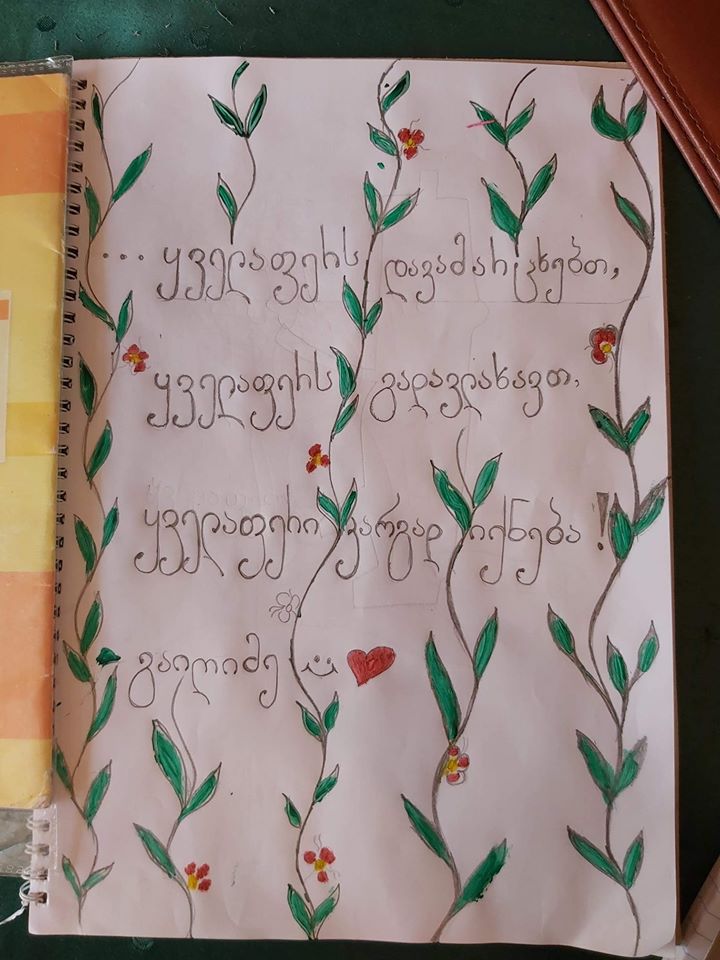 ... ყველაფერს დავამარცხებთ,
ყველაფერს გადავლახავთ,
ყველაფერი კარგად იქნება !
გაიღიმე